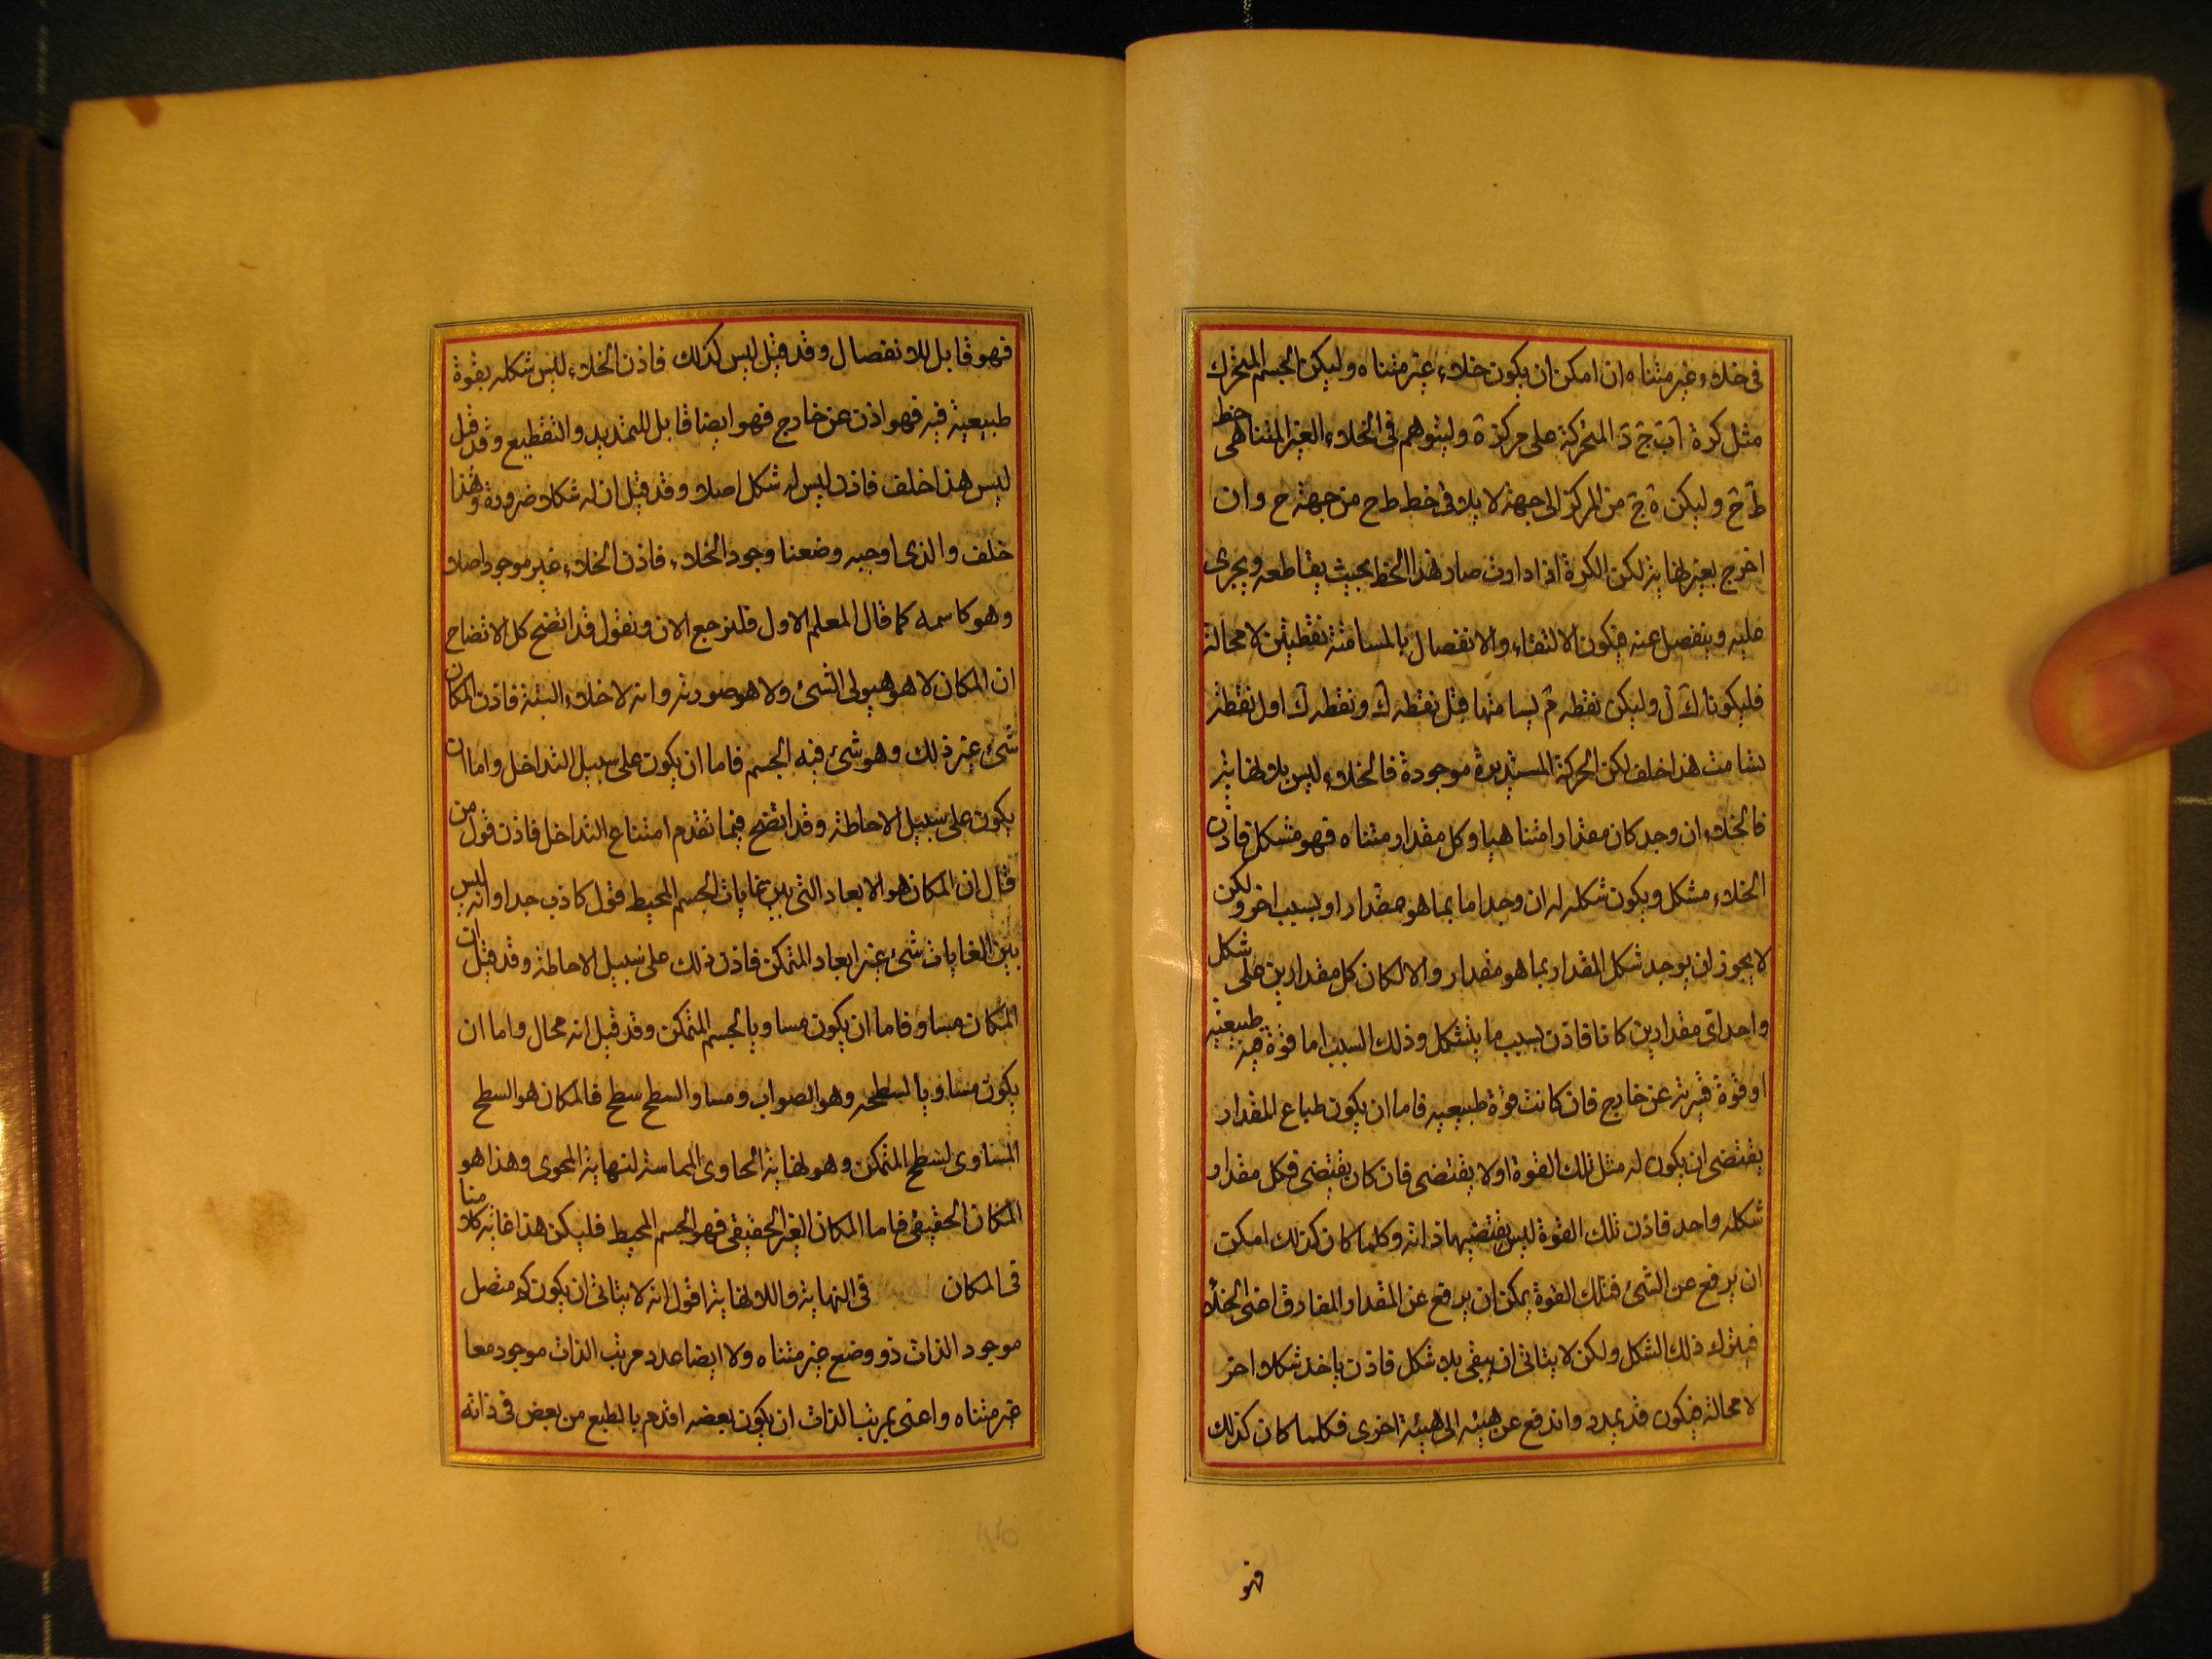 فى خلاء وغير متناه ان امكن ان يكون خلاء غير متناه وليكن الجسم المتحرك
مثل كرة اَ بَ جَ دَ المتحركة على مركز ه وليتوهم فى الخلاء الغير المتناهى خط
طَ حَ وليكن ه جَ من المركز الى جهة لا يلاقى خط ط ح من جهة ح وان
اخرج بغير نهاية لكن الكرة اذا دارت صار هذا الخط بحيث يقاطعه ويجرى
عليه وينفصل عنه فيكون الالتقاء والانفصال بالمسامتة نقطتين لا محالة
فليكونا كَ لَ وليكن نقطه مَ يسامتها قبل نقطه كَ ونقطه كَ اول نقطة
تسامت هذا خلف لكن الحركة المستديرة موجودة فالخلاء ليس بلا نهاية
فالخلاء ان وجد كان مقدارا متناهيا وكل مقدار متناه فهو مشكل فاذن
الخلاء مشكل ويكون شكله له ان وجد اما بما هو مقدار او بسبب اخر ولكن
لا يجوز ان يوجد شكل المقدار بما هو مقدار والا لكان كل مقدارين على شكل
واحد اى مقدارين كانا فاذن بسبب ما يتشكل وذلك السبب اما قوة فيه طبيعية
او قوة قسرية عن خارج فان كانت قوة طبيعيه فاما ان يكون طباع المقدار
يقتضى ان يكون له مثل تلك القوة او لا يقتضى فان كان يقتضى فكل مقدار
شكله واحد فاذن تلك القوة ليس يقتضيها ذاته وكلما كان كذلك امكن
ان يرفع عن الشئ فتلك القوة يمكن ان يرفع عن المقدار المفارق اعنى الخلاء
فيترك ذلك الشكل ولكن لا يتاتى ان يبقى بلا شكل فاذن ياخذ شكلا اخر
لا محالة فيكون قد يمدد واندفع عن هيئه الى هيئة اخرى فكلما كان كذلك
فهو
فهو قابل للانفصال وقد قيل ليس كذلك فاذن الخلاء ليس شكله بقوة
طبيعية فيه فهو اذن عن خارج فهو ايضا قابل للتمديد والتقطيع وقد قيل
ليس هذا خلف فاذن ليس له شكل اصلا وقد قيل ان له شكلا ضرورة وهذا
خلف والذى اوجبه وضعنا وجود الخلاء فاذن الخلاء غير موجود اصلا
وهو كاسمه كما قال المعلم الاول فلنرجع الان ونقول قد اتضح كل الاتضاح
ان المكان لا هو هيولى الشئ ولا هو صورته وانه لا خلاء البتة فاذن المكان
شئ غير ذلك وهو شئ فيه الجسم فاما ان يكون على سبيل التداخل واما ان
يكون على سبيل الاحاطة وقد اتضح فيما تقدم امتناع التداخل فاذن قول من
قال ان المكان هو الابعاد التى بين غايات الجسم المحيط قول كاذب جدا وانه ليس
بين الغايات شئ غير ابعاد المتمكن فاذن ذلك على سبيل الاحاطة وقد قيل ان
المكان مساو فاما ان يكون مساويا لجسم المتمكن وقد قيل انه محال واما ان
يكون مساويا لسطحه وهو الصواب ومساو السطح سطح فالمكان هو السطح
المساوى لسطح المتمكن وهو نهاية الحاوى المماسة لنهاية المحوى وهذا هو
المكان الحقيقى فاما المكان الغير الحقيقى فهو الجسم المحيط فليكن هذا غاية كلامنا
فى المكان فى النهاية واللانهاية اقول انه لا يتاتى ان يكون كم متصل
موجود الذات ذو وضع غير متناه ولا ايضا عدد مرتب الذات موجود معا
غير متناه واعنى بمرتب الذات ان يكون بعضه اقدم بالطبع من بعض فى ذاته